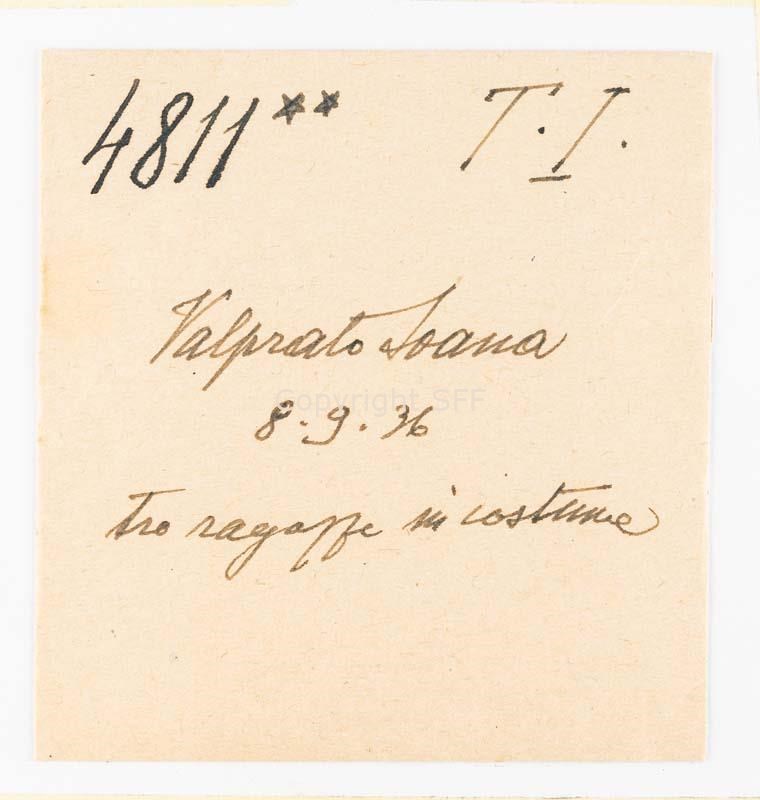 4811** T.I.
Valprato Soana
Copyright SFF
8.9.36
tre ragazze in costume